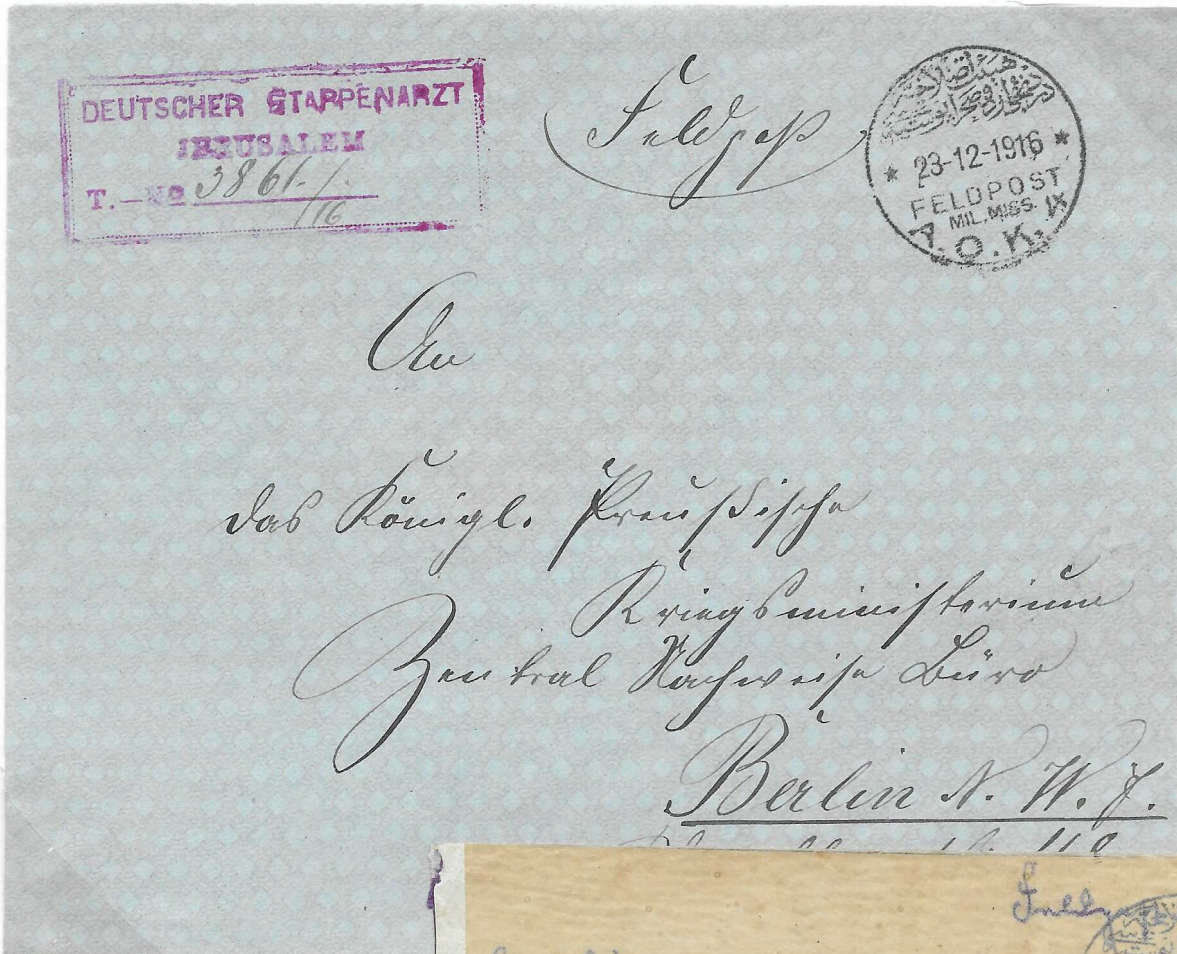 DEUTSCHER ETAPPENARZT
JERUSALEM
T.—No 3861./.
/16
Feldpost
* 23-12-1916 *
FELDPOST
MIL. MISS.
A.O.K. IX
An
das Königl. Preußische
Kriegsministerium
Zentral Nachweise Büro
Berlin N. W. 7.
118